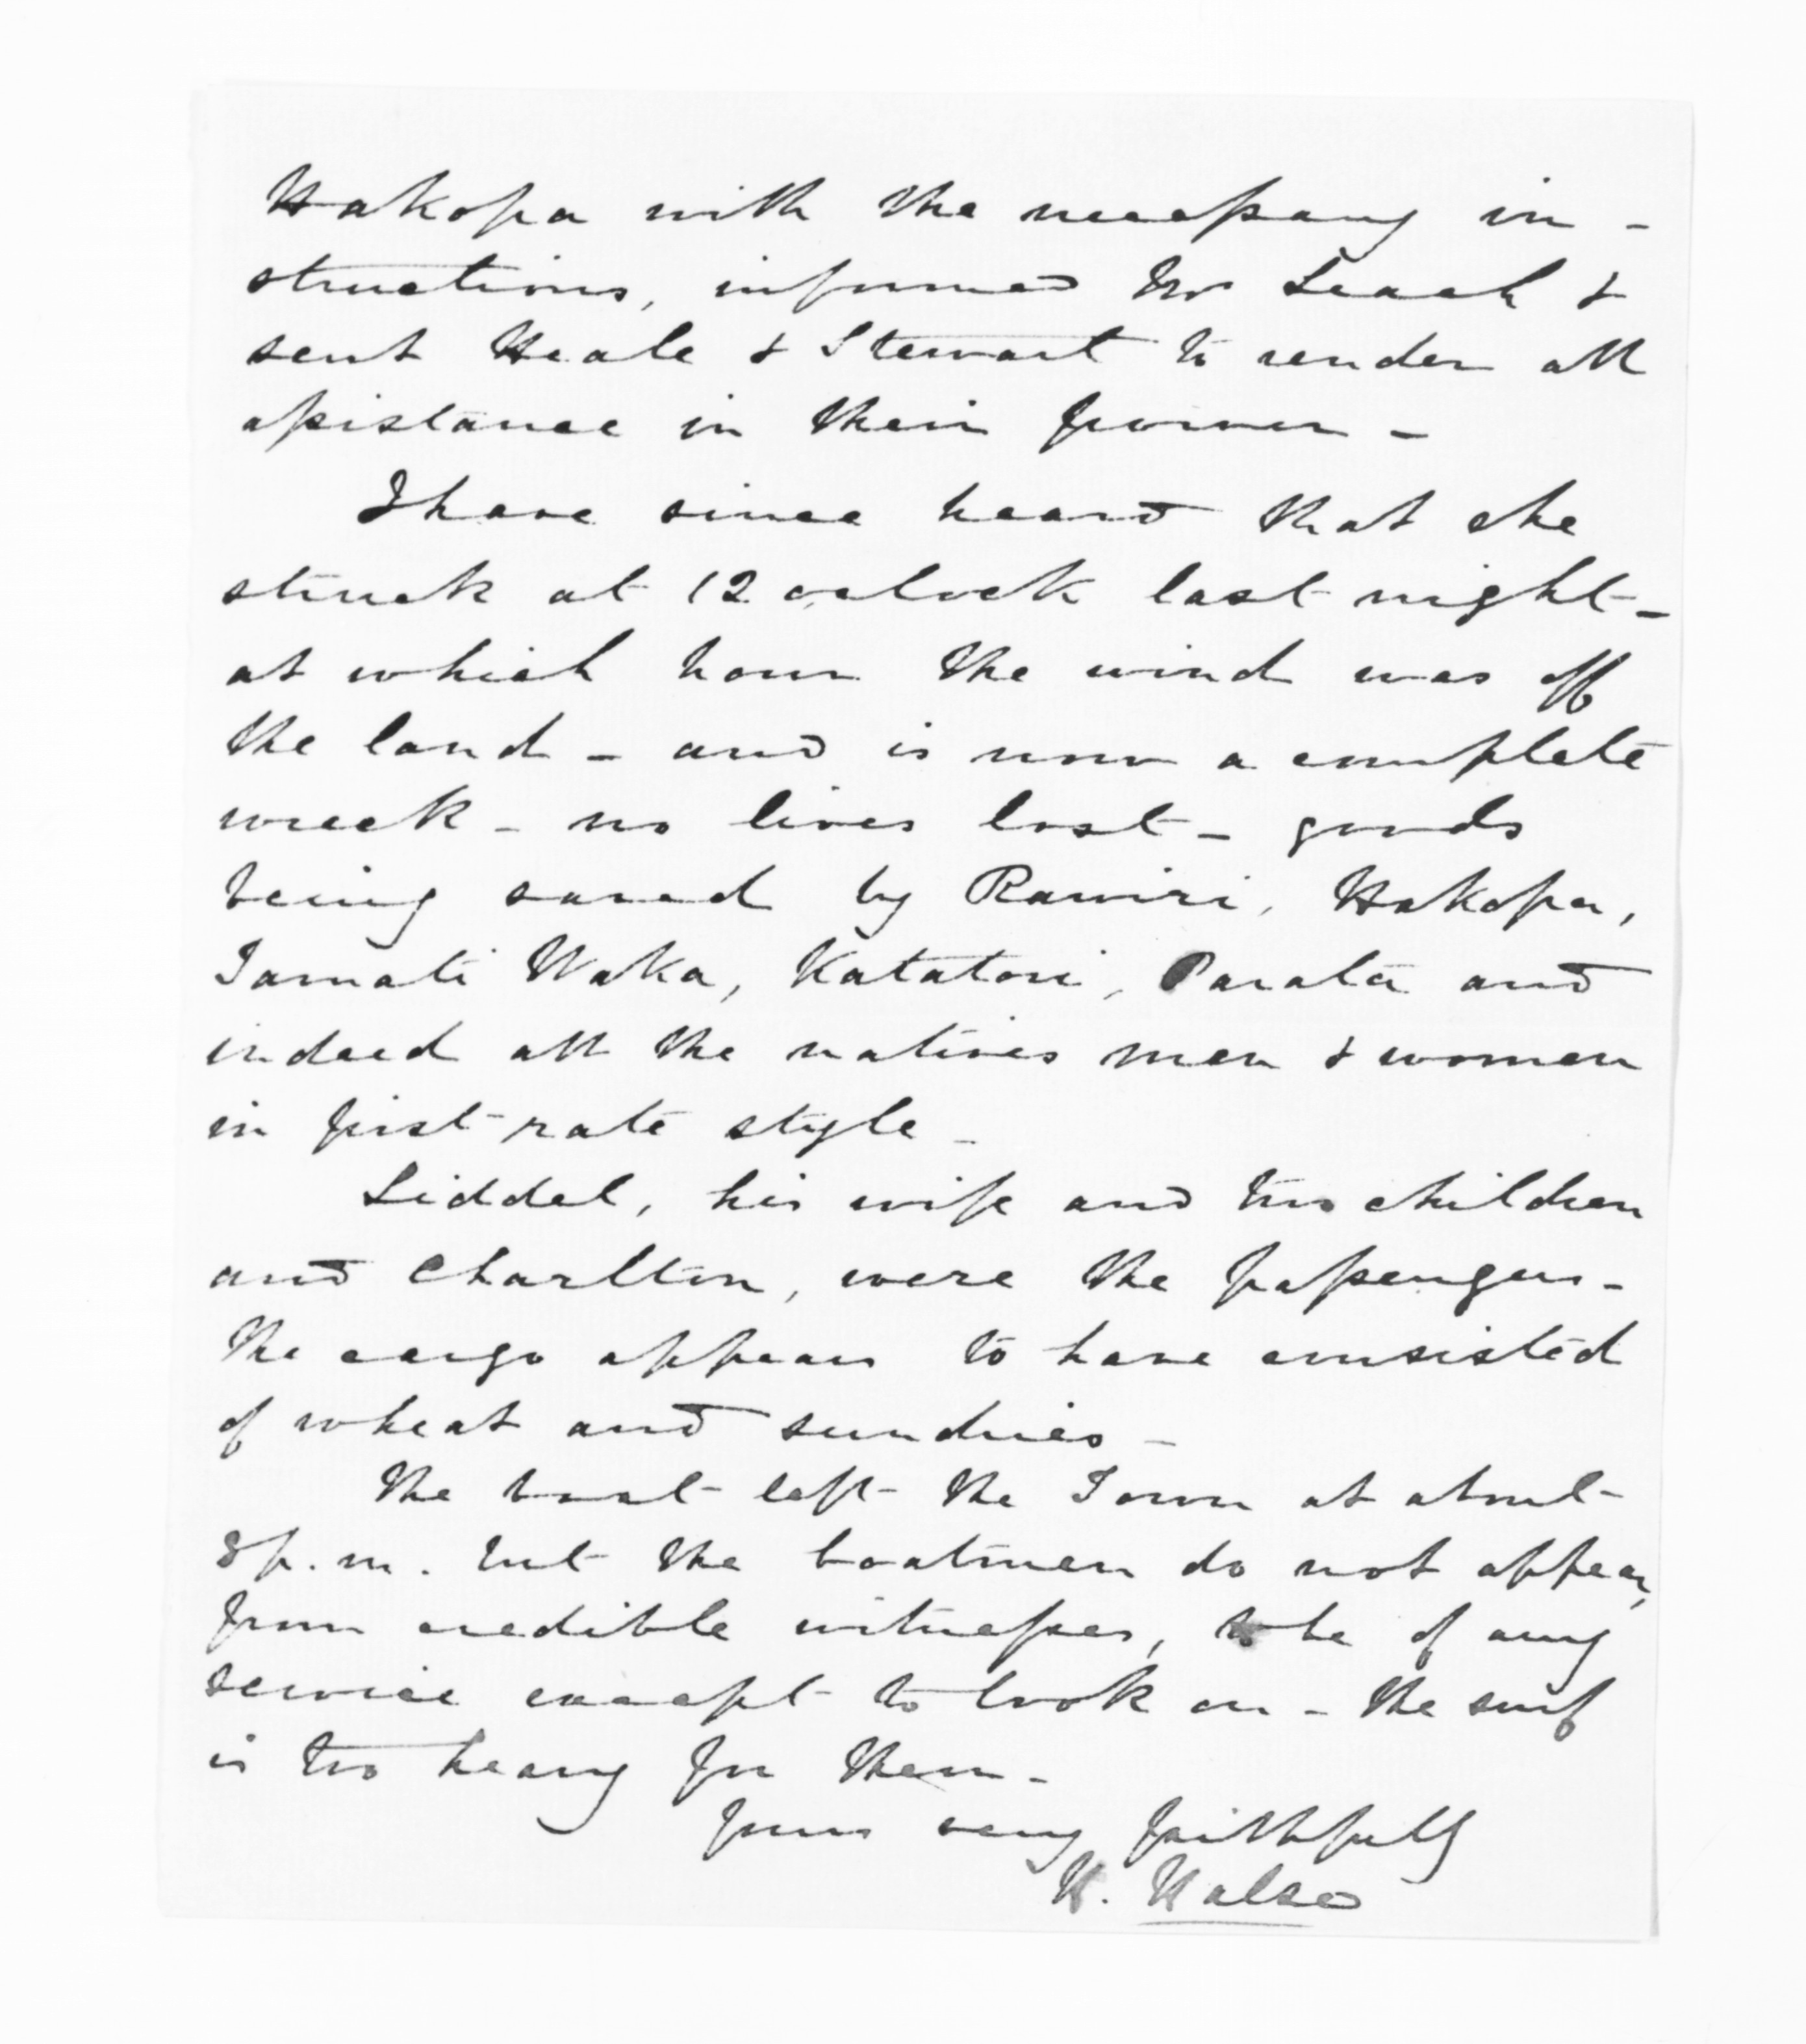 Hakopa with the necessary in-
structions, informed Mr Leach &
sent Heale & Stewart to render all
assistance in their power -
I have since heard that she
struck at 12 oclock last night -
at which hour the wind was off
the land - and is now a complete
wreck - no lives lost - goods
being saved by Rawiri, Hakopa,
Tamati Waka, Katatori, Parata and
indeed all the natives men & women
in first rate style -
Liddel, his wife and two children
and Charlton, were the passengers -
The cargo appears to have consisted
of wheat and sundries -
The boat left the Town at about
8 p.m. but the boatmen do not appear,
from credible witnesses, to be of any
service except to look on - the surf
is too heavy for them -
Yours very faithfully
H. Halse